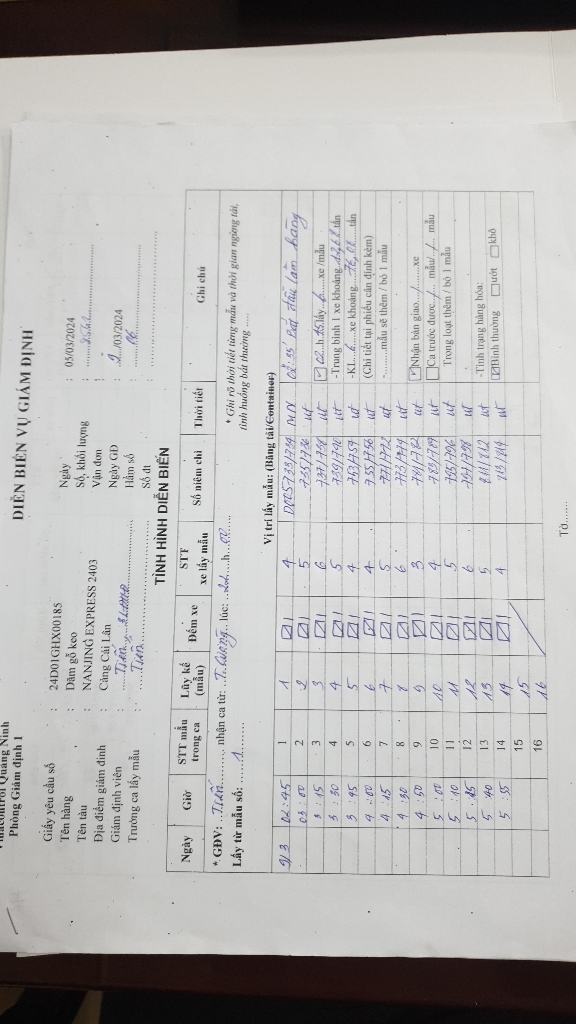 Vinacontrol Quảng Ninh
Phòng Giám định 1
DIỄN BIẾN VỤ GIÁM ĐỊNH
Giấy yêu cầu số : 24D01GHX00185 Ngày : 05/03/2024
Tên hàng : Dăm gỗ keo Số, khối lượng :
Tên tàu : NANJING EXPRESS 2403 Vận đơn :
Địa điểm giám định : Cảng Cái Lân Ngày GD : 9../03/2024
Giám định viên : Tiến Hầm số : 06
Trưởng ca lấy mẫu : Tiến Số đt :
TÌNH HÌNH DIỄN BIẾN
Ngày Giờ STT mẫu trong ca Lũy kế (mẫu) Đếm xe STT xe lấy mẫu Số niêm chì Thời tiết Ghi chú
* GĐV: ..Tiến.. nhận ca từ: T. Cường lúc: h.00 * Ghi rõ thời tiết từng mẫu và thời gian ngừng tải,
Lấy từ mẫu số: 1 tình huống bất thường .....
Vị trí lấy mẫu: (Băng tải/Container)
9/3 02:45 1 1 ☑ 1 4 733/734 02:35 Bắt đầu làm hàng
03:00 2 2 ☑ 1 5 735/736 ut
3:15 3 3 ☑ 1 6 737/738 ut ☑ 02.h.35 lấy 6 xe /mẫu
3:30 4 4 ☑ 1 5 739/740 ut -Trung bình 1 xe khoảng 12,68 tấn
3:45 5 5 ☑ 1 4 ut -KL 6 xe khoảng 76,08 tấn
4:00 6 6 ☑ 1 4 ut (Chi tiết tại phiếu cân định kèm)
4:15 7 7 ☑ 1 5 771/772 ut -..........mẫu sẽ thêm / bỏ 1 mẫu
4:30 8 8 ☑ 1 6 773/774 ut
4:50 9 9 ☑ 1 3 781/782 ut ☑ Nhận bàn giao / xe
5:00 10 10 ☑ 1 4 783/784 ut ☐ Ca trước được / mẫu/ / mẫu
5:10 11 11 ☑ 1 5 795/796 ut Trong loạt thêm / bỏ 1 mẫu
5:25 12 12 ☑ 1 6 797/798 ut
5:40 13 13 ☑ 1 5 811/812 ut -Tình trạng hàng hóa:
5:55 14 14 ☑ 1 4 813/814 ut ☑ Bình thường ☐ ướt ☐ khô
15 15
16 16
Tờ.......